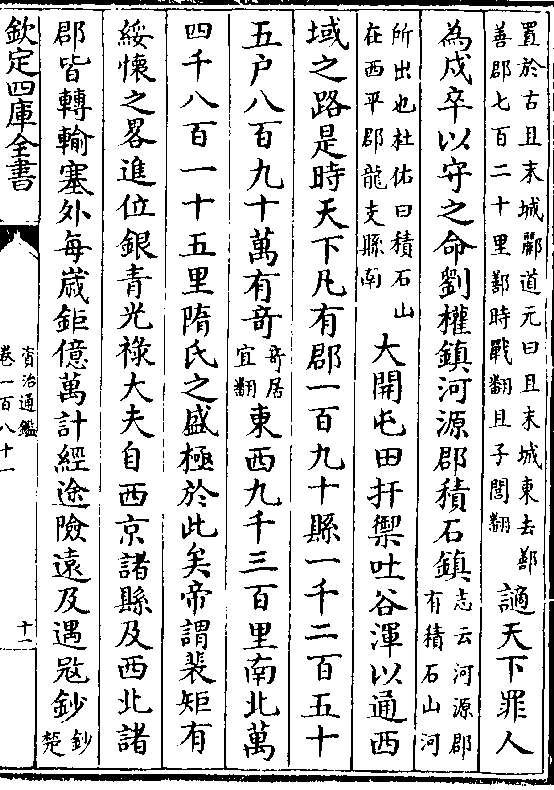 置於古且末城酈道元曰且末城東去鄯
善郡七百二十里鄯時戰翻且子閭翻
謫天下罪人
為戍卒以守之命劉權鎮河源郡積石鎮
志云河源郡
有積石山河
所出也杜佑曰積石山
在西平郡龍支縣南
大開屯田扞禦吐谷渾以通西
域之路是時天下凡有郡一百九十縣一千二百五十
五户八百九十萬有竒
竒居
宜翻
東西九千三百里南北萬
四千八百一十五里隋氏之盛極於此矣帝謂裴矩有
綏懐之畧進位銀青光祿大夫自西京諸縣及西北諸
郡皆轉輸塞外每嵗鉅億萬計經途險逺及遇㓂鈔
鈔
楚
欽定四庫全書
資治通鑑
卷一百八十一
十一